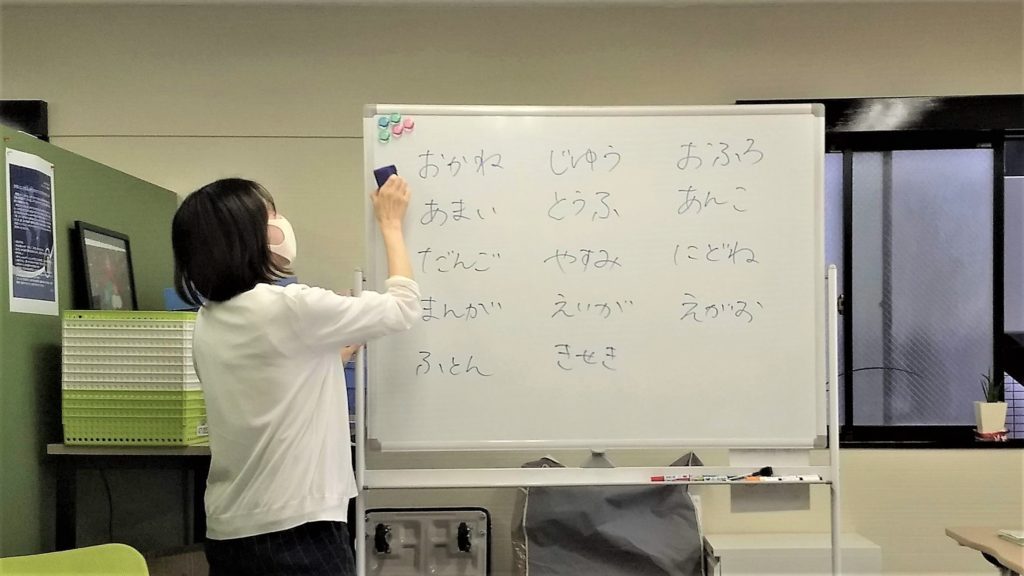 おかね じゆう おふろ
あまい とうふ あんこ
だんご やすみ にどね
まんが えいが えがお
ふとん きせき